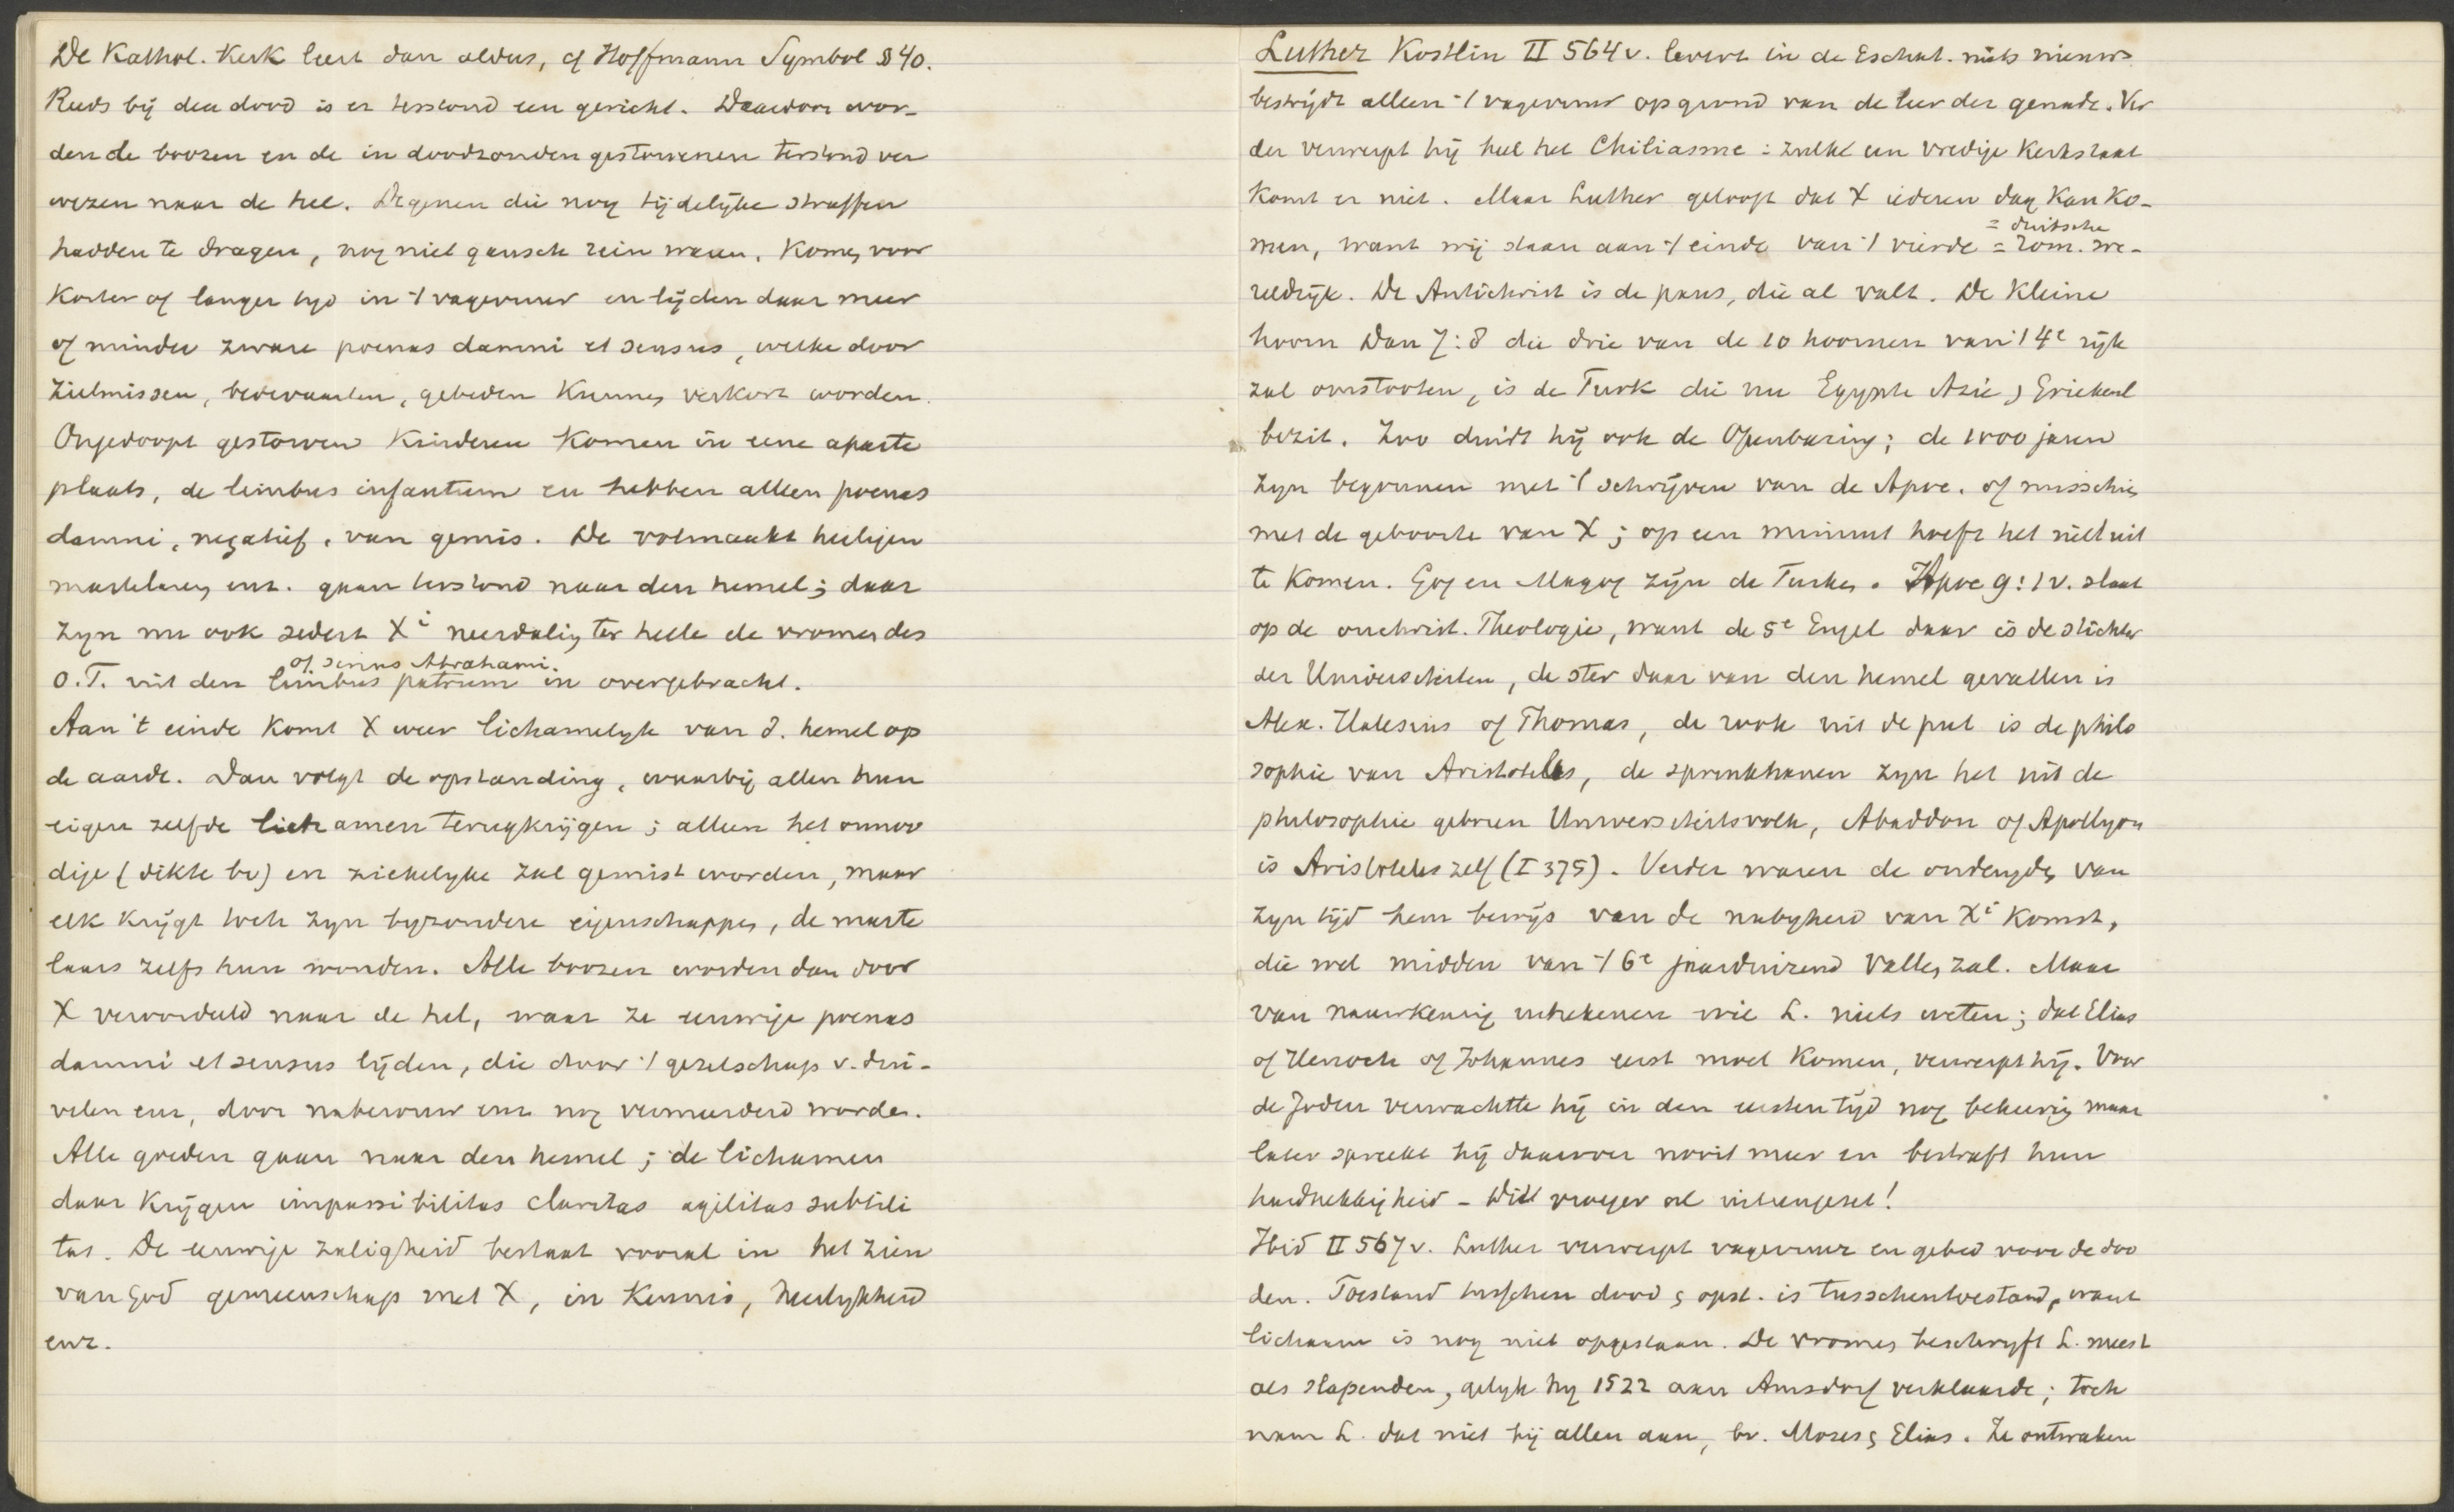 De Kathol. Kerk leert dan aldus, cf Hoffmann Symbol § 40.
Reeds bij den dood is er terstond een gericht. Daardoor wor-
den de boozen en de in doodzonden gestorvenen terstond ver
wezen naar de hel. Degenen die nog tijdelijke straffen
hadden te dragen, nog niet gansch rein waren, komen voor
korter of langer tijd in 't vagevuur en lijden daar meer
of minder zware poenas damni et sensus, welke door
zielmissen, bedevaarten, gebeden kunnen verkort worden.
Ongedoopt gestorven kinderen komen in eene aparte
plaats, de limbus infantum en hebben alleen poenas
damni, negatief, van gemis. De volmaakt heiligen
martelaren enz. gaan terstond naar den hemel; daar
zijn nu ook sedert Xi neerdaling ter helle de vromen des
of sinus Abrahami.
O.T. uit den limbus patrum in overgebracht.
Aan 't einde komt X weer lichamelijk van d. hemel op
de aarde. Dan volgt de opstanding, waarbij allen hun
eigen zelfde lichamen terugkrijgen; alleen het onnoo
dige (dikte bv) en ziekelijke zal gemist worden, maar
elk krijgt toch zijn bijzondere eigenschappen, de marte
laars zelfs hun wonden. Alle boozen worden dan door
X veroordeeld naar de hel, waar ze eeuwige poenas
damni et sensus lijden, die door 't gezelschap v. dui-
velen enz, door naberouw enz nog vermeerderd worden.
Alle goeden gaan naar den hemel; de lichamen
daar krijgen impassibilitas claritas agilitas subtili
tas. De eeuwige zaligheid bestaat vooral in het zien
van God gemeenschap met X, in kennis, heerlijkheid
enz.
Luther Kostlin II 564 v. levert in de Eschat. niets nieuws
bestrijdt alleen 't vagevuur op grond van de leer der genade. Ver
der verwerpt hij heel het Chiliasme: zulke een vredige Kerkstaat
komt er niet. Maar Luther gelooft dat X iederen dag kan ko-
= duitsche
men, want wij staan aan 't einde van 't vierde = rom. we-
reldrijk. De Antichrist is de paus, die al valt. De kleine
hoorn Dan 7:8 die drie van de 10 hoornen van 't 4e rijk
zal omstooten, is de Turk die nu Egypte Azie & Griekenl
bezit. Zoo duidt hij ook de Openbaring; de 1000 jaren
zijn begonnen met 't schrijven van de Apoc. of misschien
met de geboorte van X; op een minuut hoeft het niet uit
te komen. Gog en Magog zijn de Turken. Apoc 9:1 v. slaat
op de onchrist. Theologie, want de 5e Engel daar is de stichter
der Universiteiten, de ster daar van den hemel gevallen is
Alex. Halesius of Thomas, de rook uit de put is de philo
sophie van Aristoteles, de sprinkhanen zijn het uit de
philosophie geboren Universiteitsvolk, Abaddon of Apollyon
is Aristoteles zelf (I 375). Verder waren de ondeugden van
zijn tijd hem bewijs van de nabijheid van Xi komst,
die wel midden van 't 6e jaarduizend vallen zal. Maar
van nauwkeurig uitrekenen wil L. niets weten; dat Elias
of Henoch of Johannes eerst moet komen, verwerpt hij. Voor
de Joden verwachtte hij in den eersten tijd nog bekeering maar
later spreekt hij daarover nooit meer en bestraft hun
hardnekkigheid – Dit vroeger al uiteengezet!
Ibid II 567 v. Luther verwerpt vagevuur en gebed voor de doo
den. Toestand tusschen dood & opst. is tusschentoestand, want
lichaam is nog niet opgestaan. De vromen beschrijft L. meest
als slapenden, gelijk hij 1522 aan Amsdorf verklaarde; toch
nam L. dat niet bij allen aan, bv. Mozes & Elias. Ze ontwaken